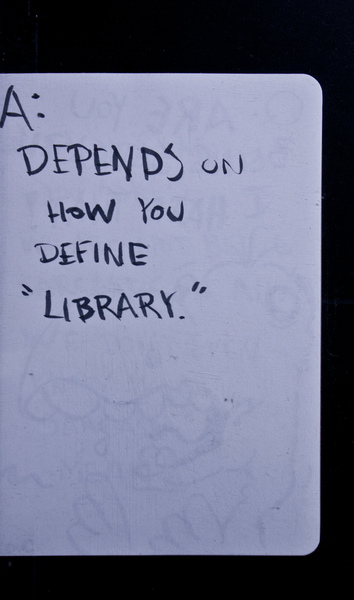 A:
DEPENDS ON
HOW YOU
DEFINE
"LIBRARY."